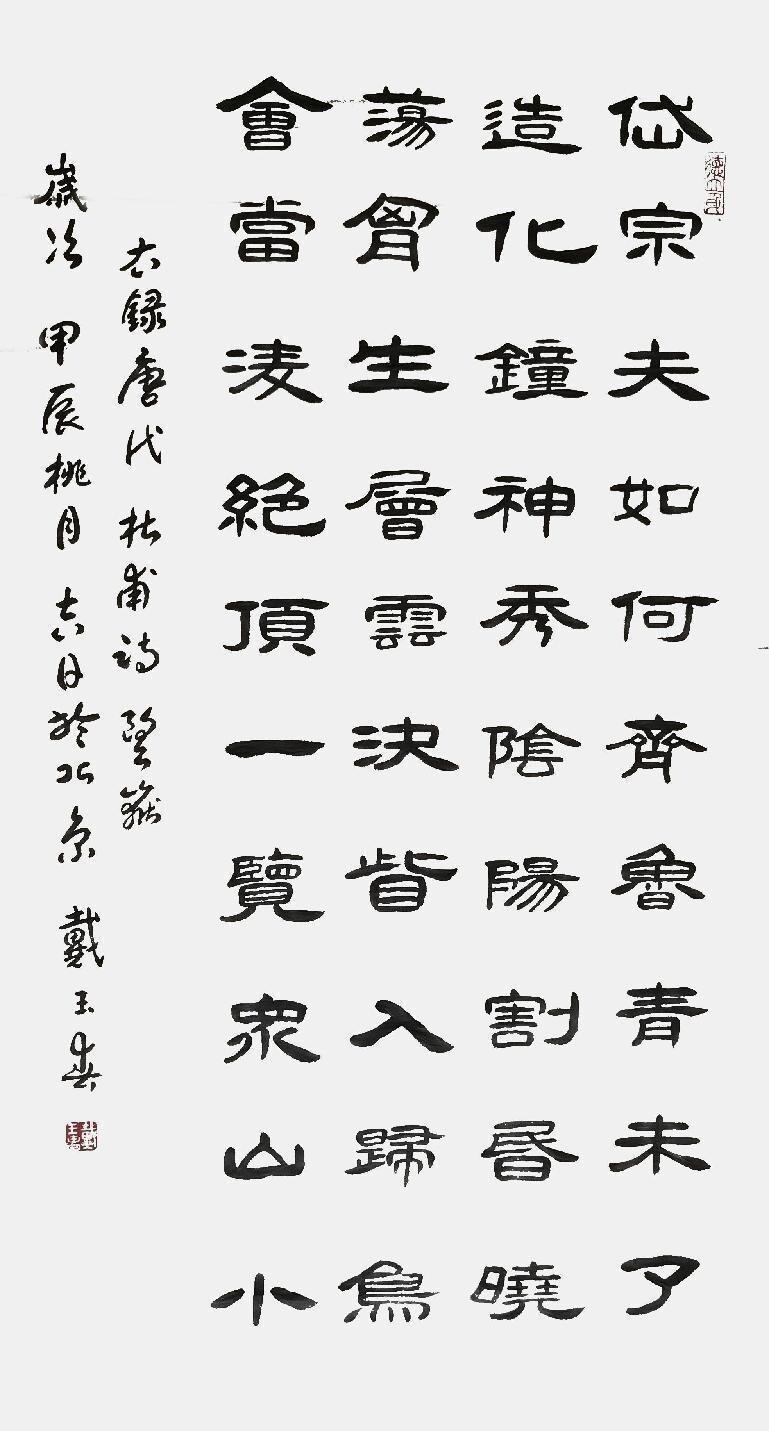 岱宗夫如何齊魯青未了
造化鐘神秀陰陽割昏曉
蕩胷生層雲決眥入歸鳥
會當淩絕頂一覽眾山小
右録唐代杜甫詩望嶽
歲次甲辰桃月六日於北京戴玉春